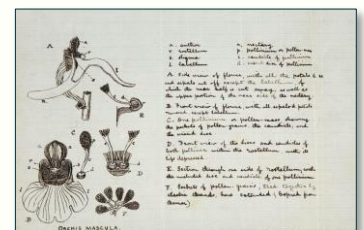 a. anther
r. rostellum
s. stigma
l. labellum
n. nectary
p. pollinium or pollen mass
c. caudicle of pollinium
d. viscid disc of pollinium
A. Side view of flower, with all the petals & se
pals cut off except the labellum of
which the near half is cut away, as well as
the upper portion of the near side of the nectary.
B. Front view of flower with all sepals & petals
removed, except labellum.
C. One pollinium or pollen mass showing
the packets of pollen grains, the caudicle, and
the viscid disc.
D. Front view of the discs and caudicles of
both pollinia within the rostellum with its
lip depressed.
E. Section through one side of rostellum, with
the included disc and caudicle of one pollinium
F. Packets of pollen-grains, tied together by
elastic threads, here extended (copied from
Bauer)
A
B
C
D
E
F
ORCHIS MASCULA.